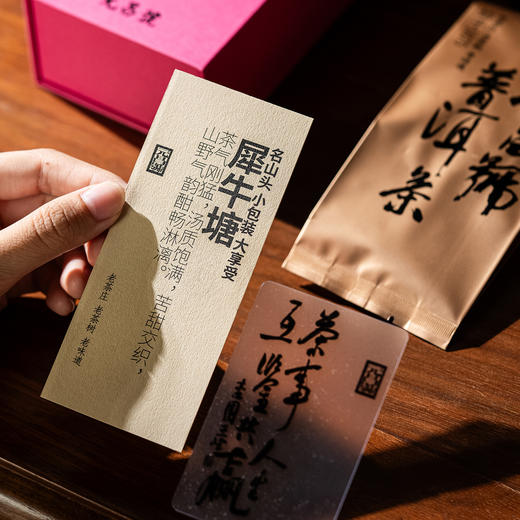 元昌號
名山头 小包装 大享受
犀牛塘
茶气刚猛，汤质饱满，苦甜交织，
山野气韵酣畅淋漓。
老茶庄 老茶树 老味道
號
普洱茶
茶事人生
互鉴共赢